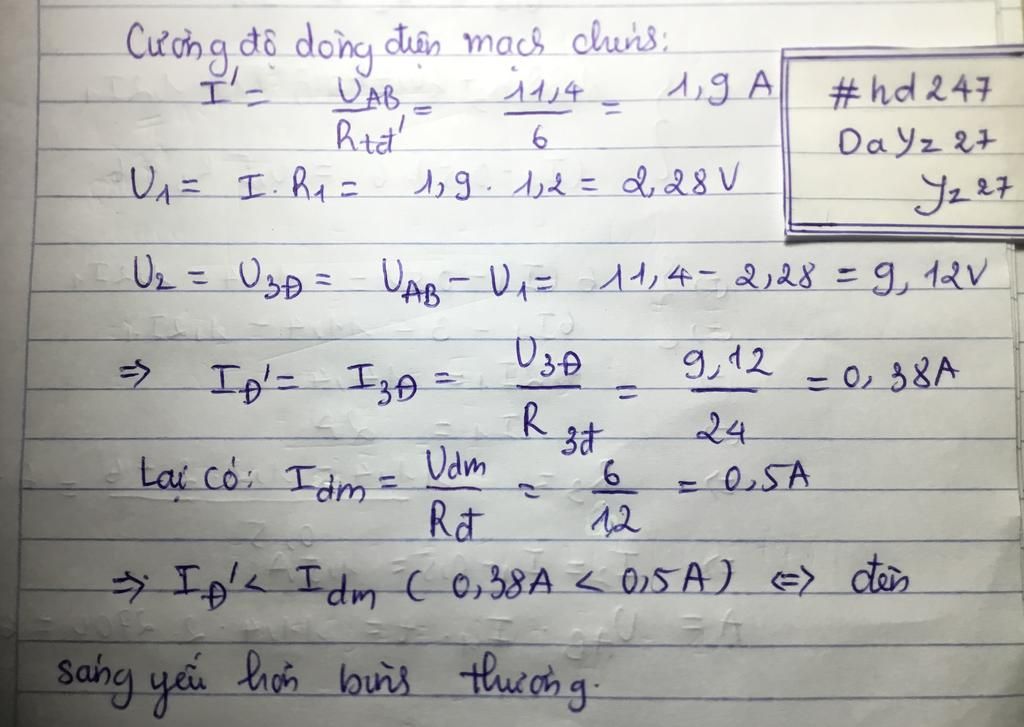 Cường độ dòng điện mạch chính:
I' = U_AB / R_tđ' = 11,4 / 6 = 1,9 A
#hd247
DaYz27
Yz27
U_1 = I . R_1 = 1,9 . 1,2 = 2,28 V
U_2 = U_3Đ = U_AB - U_1 = 11,4 - 2,28 = 9,12V
=> I_Đ' = I_3Đ = U_3Đ / R_3đ = 9,12 / 24 = 0,38A
Lại có: I_dm = U_dm / R_đ = 6 / 12 = 0,5A
=> I_Đ' < I_dm ( 0,38A < 0,5A ) <=> đèn
sáng yếu hơn bình thường.